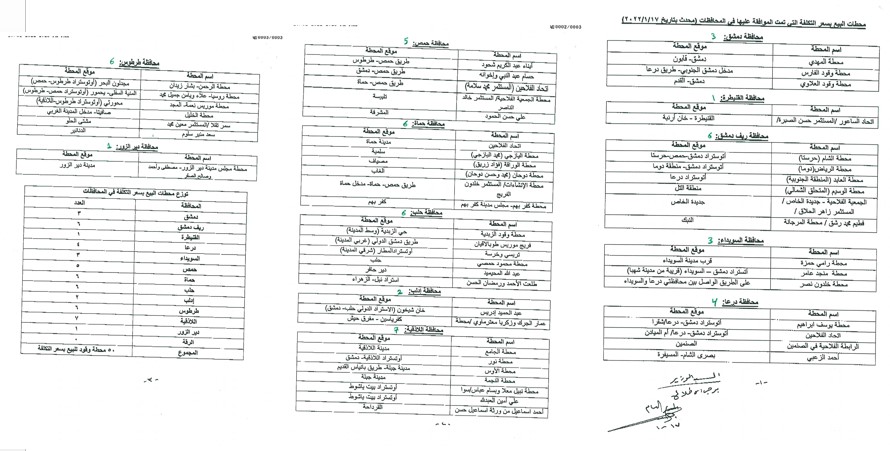 محطات البيع بسعر التكلفة التي تمت الموافقة عليها في المحافظات (محدث بتاريخ ٢٠٢٢/١/١٧)
محافظة دمشق: 3
اسم المحطة موقع المحطة
محطة المهدي دمشق- قابون
محطة وقود الفارس مدخل دمشق الجنوبي- طريق درعا
محطة وقود العلاوي دمشق- القدم
محافظة القنيطرة: 1
اسم المحطة موقع المحطة
اتحاد الساعور /المستثمر حسن الصبرة/ القنيطرة - خان أرنبة
محافظة ريف دمشق: 6
اسم المحطة موقع المحطة
محطة الشام (حرستا) أتوستراد دمشق-حمص-حرستا
محطة الرياض(دوما) أتوستراد دمشق- منطقة دوما
محطة العابد (المنطقة الجنوبية) أتوستراد درعا
محطة الوسيم (المتحلق الشمالي) منطقة التل
الجمعية الفلاحية - جديدة الخاص / المستثمر زاهر الحلاق / جديدة الخاص
فطيم محمد رشق / محطة المرجانة النبك
محافظة السويداء: 3
اسم المحطة موقع المحطة
محطة رامي حمزة قرب مدينة السويداء
محطة منجد عامر أتستراد دمشق – السويداء (قريبة من مدينة شهبا)
محطة خلدون نصر على الطريق الواصل بين محافظتي درعا والسويداء
محافظة درعا: 4
اسم المحطة موقع المحطة
محطة يوسف ابراهيم أتوستراد دمشق- درعا/شقرا
اتحاد الفلاحين أتوستراد دمشق- درعا/ أم الميادن
الرابطة الفلاحية في الصنمين الصنمين
أحمد الزعبي بصرى الشام- المسيفرة
-١-
محافظة حمص: 5
اسم المحطة موقع المحطة
أبناء عبد الكريم شحود طريق حمص- طرطوس
حسام عبد النبي وإخوانه طريق حمص- دمشق
اتحاد الفلاحين (المستثمر محمد سلامة) طريق حمص- حماة
محطة الجمعية الفلاحية/ المستثمر خالد الناصر تلبيسة
علي حسن الحمود المشرفة
محافظة حماة: 6
اسم المحطة موقع المحطة
اتحاد الفلاحين مدينة حماة
محطة اليازجي (محمد اليازجي) سلمية
محطة الوراقة (فؤاد زريق) مصياف
محطة دوحان (محمد وحسن دوحان) الغاب
محطة الإنشاءات/ المستثمر خلدون الفريج طريق حمص- حماة- مدخل حماة
محطة كفر بهم- مجلس مدينة كفر بهم كفر بهم
محافظة حلب: 6
اسم المحطة موقع المحطة
محطة وقود الزبدية حي الزبدية (وسط المدينة)
فريج موريس طوبالاقيان طريق دمشق الدولي (غربي المدينة)
تريسي وخرسة أوتستراد المطار (شرقي المدينة)
محطة محمود حمصي حلب
عبد الله المحيميد دير حافر
طلعت الأحمد ورمضان الحسن استراد نبل- الزهراء
محافظة إدلب: 2
اسم المحطة موقع المحطة
عبد الحميد إدريس خان شيخون (الاستراد الدولي حلب- دمشق)
عمار الجرك وزكريا محترماوي /محطة كفرياسين - مفرق حيش
محافظة اللاذقية: 7
اسم المحطة موقع المحطة
محطة الجامع مدينة اللاذقية
محطة نور أوتستراد اللاذقية- دمشق
محطة الأوس مدينة جبلة- طريق بانياس القديم
محطة النجمة مدينة جبلة
محطة نبيل معلا وبسام عباس/سوا أوتستراد بيت ياشوط
علي أمين العبدلله أوتستراد بيت ياشوط
أحمد اسماعيل من ورثة اسماعيل حسن القرداحة
-٢-
محافظة طرطوس: 6
اسم المحطة موقع المحطة
محطة الرحمن- بشار زيدان مجدلون البحر (أوتوستراد طرطوس- حمص)
محطة موريس نعمة- المجد
محطة الخليل صافيتا- مدخل المدينة الغربي
محافظة دير الزور: 1
اسم المحطة موقع المحطة
محطة مجلس مدينة دير الزور- مصطفى وأحمد وصالح الصكر مدينة دير الزور
توزع محطات البيع بسعر التكلفة في المحافظات
المحافظة العدد
دمشق ٣
ريف دمشق ٦
القنيطرة ١
درعا ٤
السويداء ٣
حمص ٥
حماة ٦
حلب ٦
إدلب ٢
طرطوس ٦
اللاذقية ٧
دير الزور ١
الرقة ٠
المجموع ٥٠ محطة وقود للبيع بسعر التكلفة
-٣-